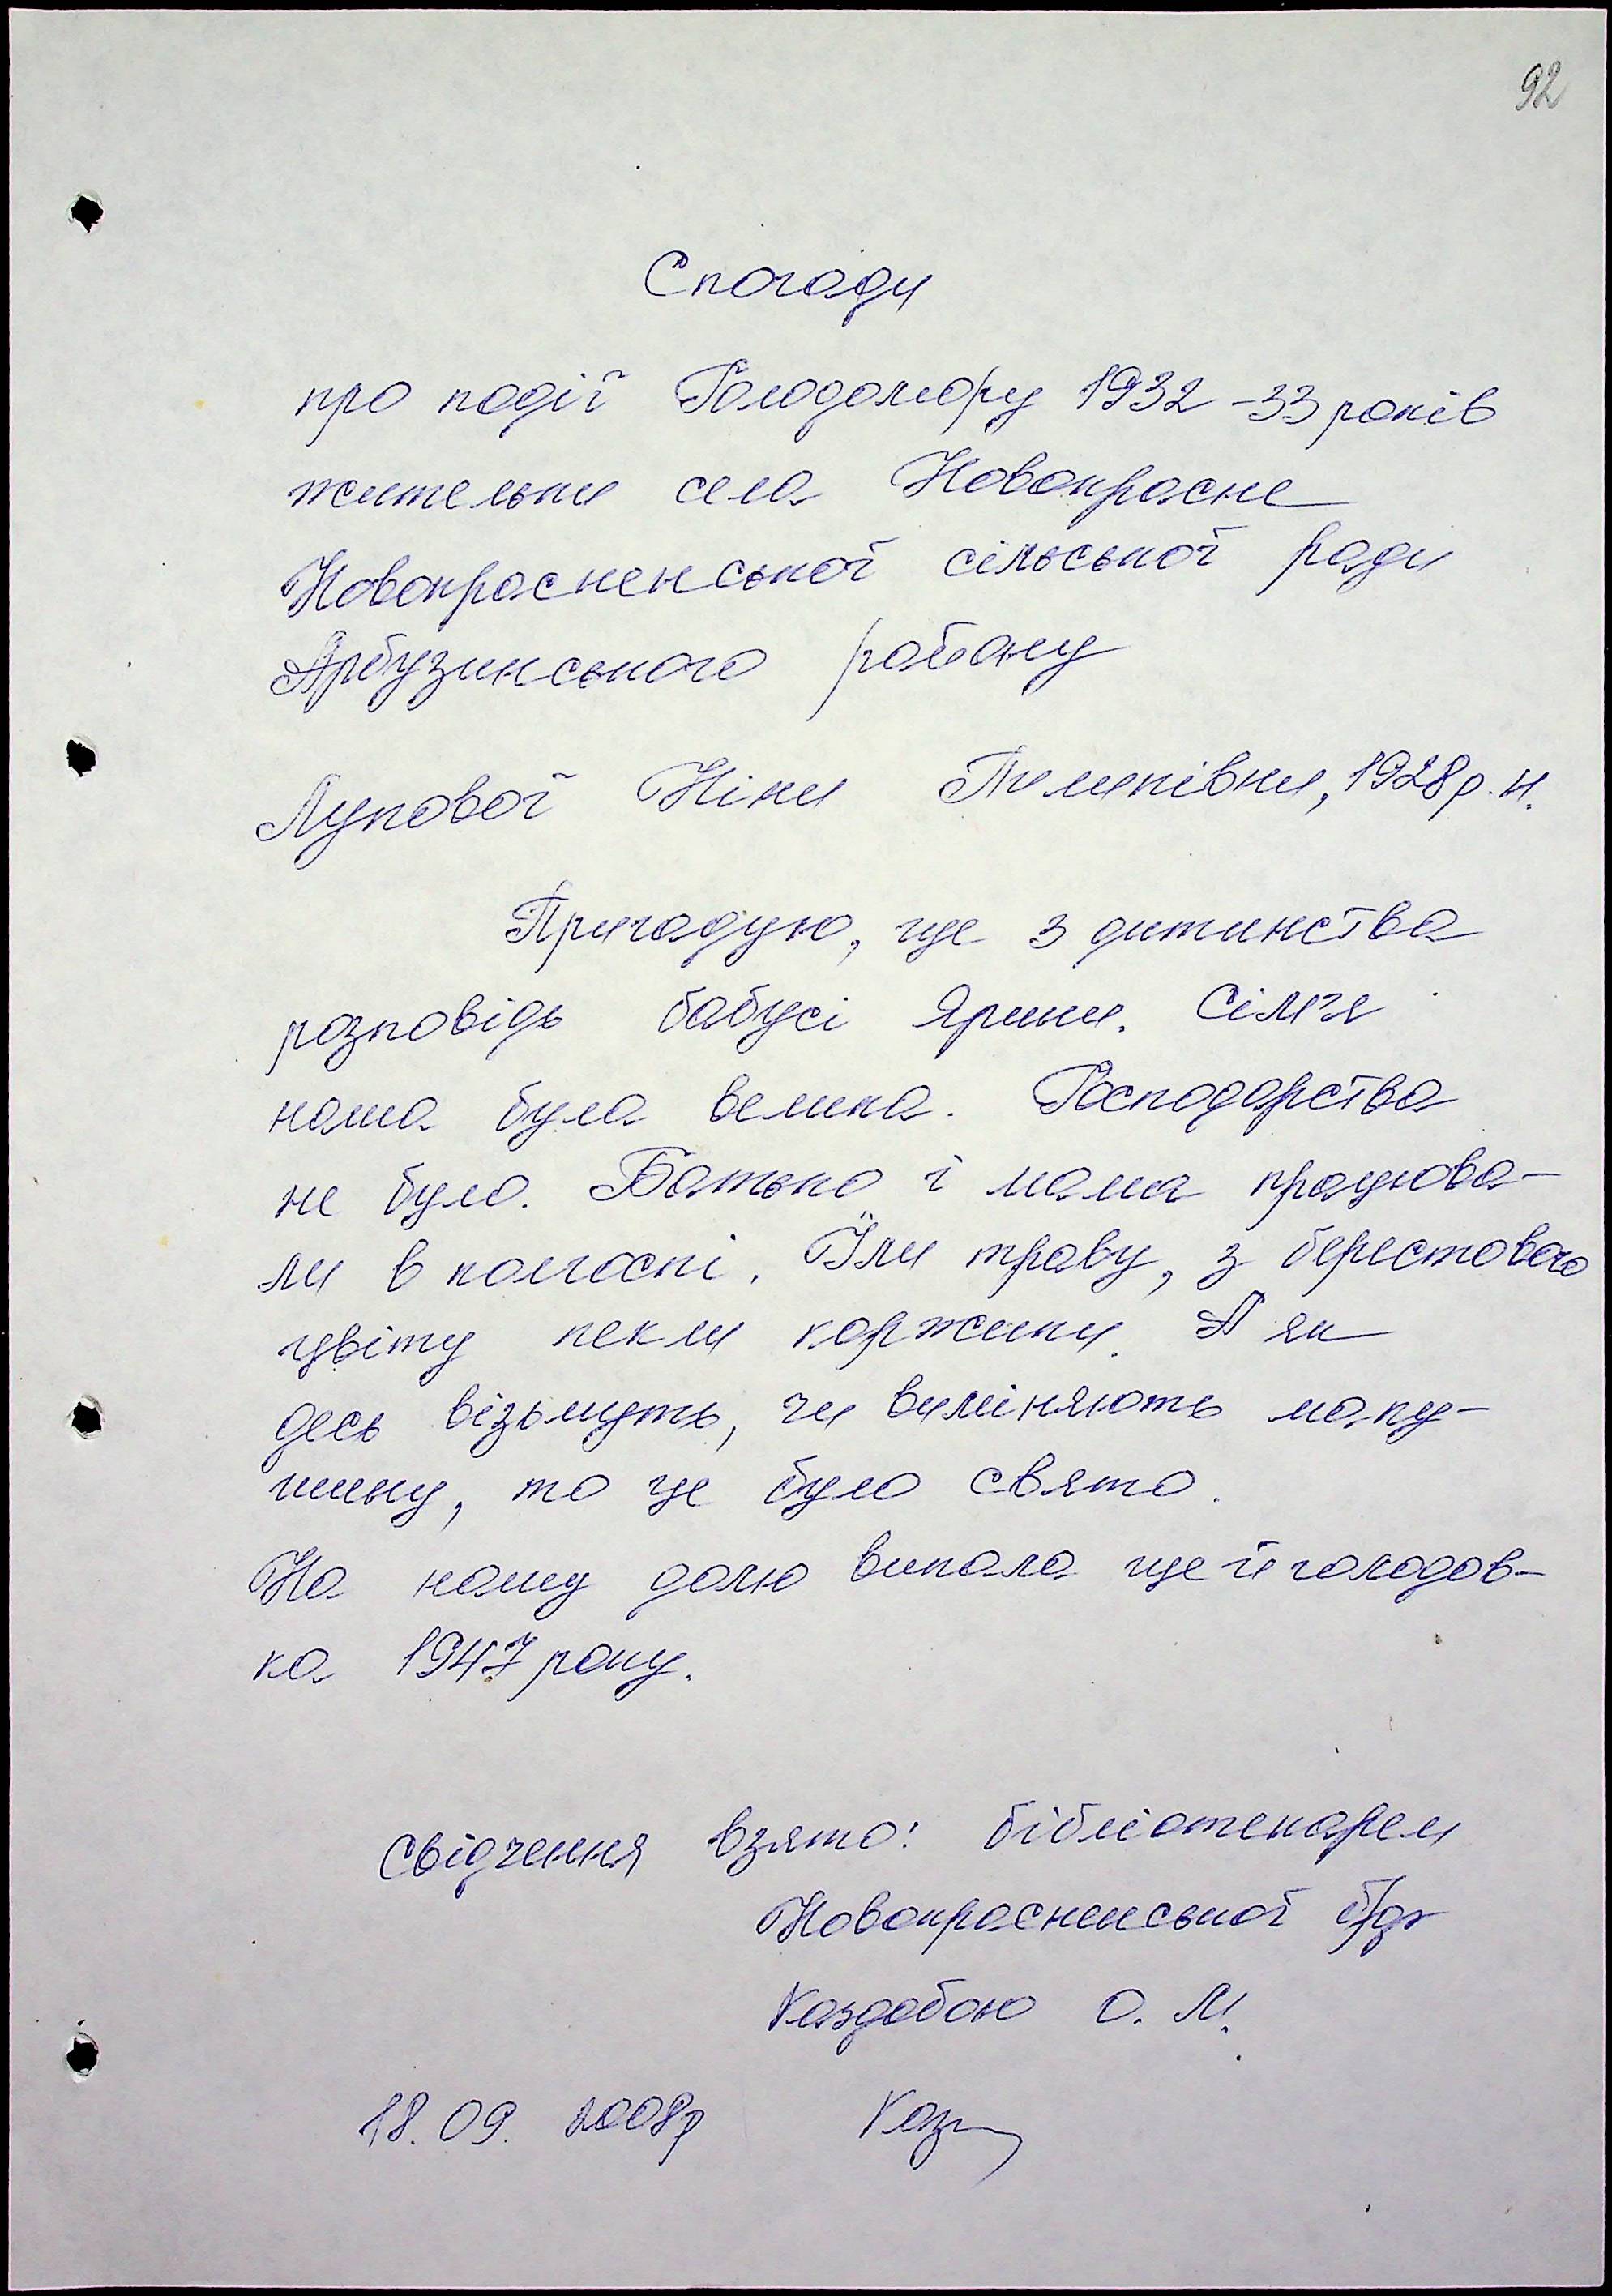 92
Спогади
про події Голодомору 1932-33 років
жительки села Новокрасне
Новокрасненської сільської ради
Арбузинського району
Лупової Ніни Пилипівни, 1928 р.н.
Пригадую, ще з дитинства
розповідь бабусі Ярини. Сім'я
наша була велика. Господарства
не було. Батько і мама працюва-
ли в колгоспі. Їли траву, з берестового
цвіту пекли коржики. А як
десь візьмуть, чи виміняють мапу-
шину, то це було свято.
На нашу долю випала ще й голодов-
ка 1947 року.
свідчення взято: бібліотекарем
Новокрасненської
Каздобою О. М.
18.09. 2008р